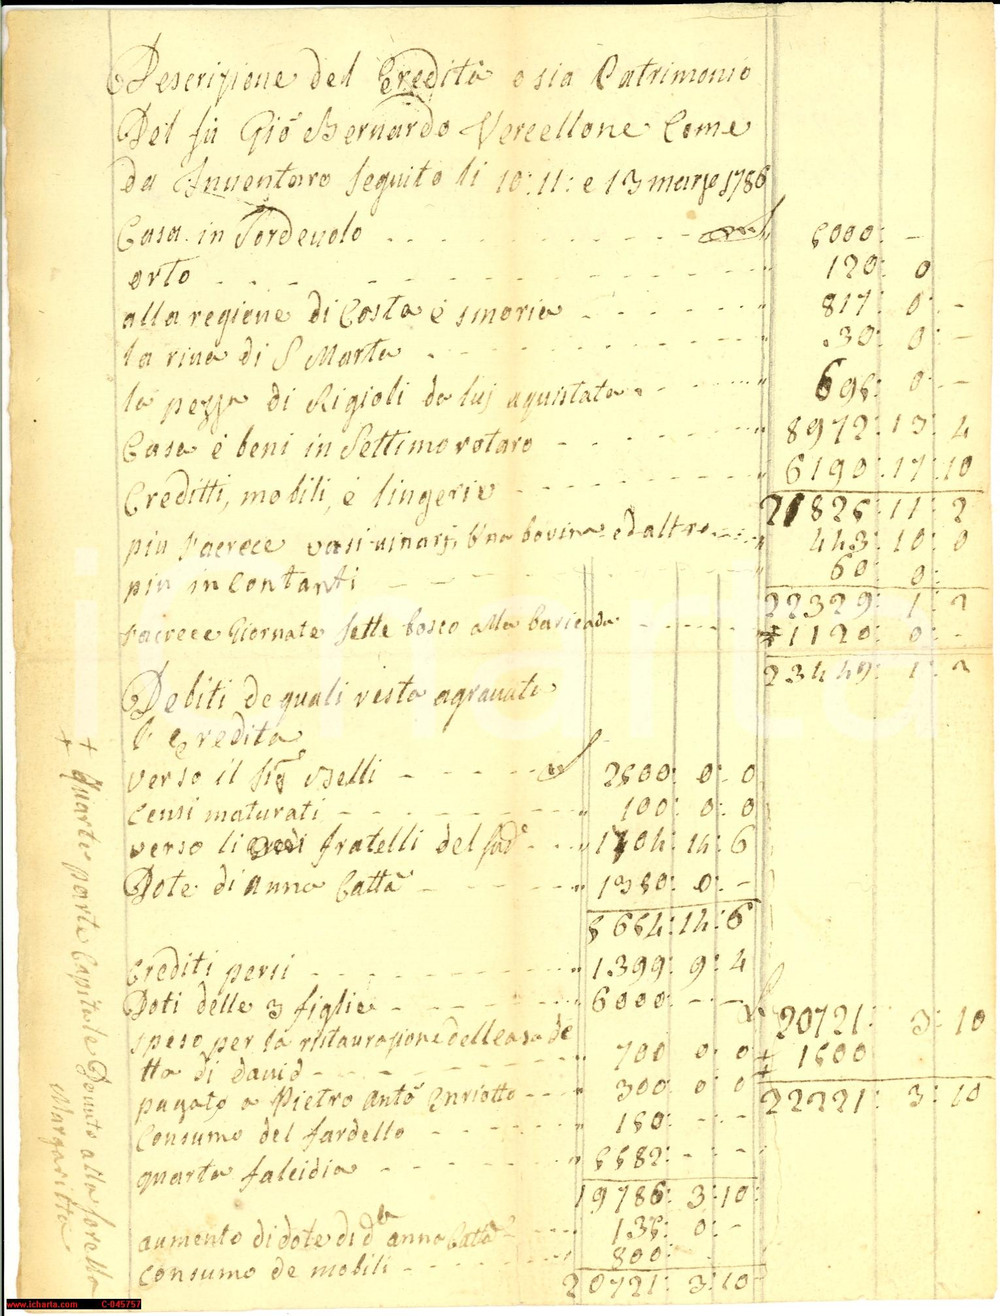 Descrizione del Eredità o sia Patrimonio
Del fù Gio Bernardo Vercellone Come
da Inuentaro seguito li 10: 11: e 13 marzo 1786
Casa in Sordeuolo 5000: -
orto 120: 0
alla regione di Costa è smoria 817: 0: -
la riua di S Marta 30: 0: -
la pezza di Rigioli da lui aquistata 695: 0: -
Casa è beni in Settimo rotaro 8972: 13: 4
Creditti, mobili, è lingerie 6190: 17: 10
21826: 11: 2
più vasi uinarj, una bovina ed altro 443: 10: 0
più in Contanti 60: 0:
22329: 1: 2
Giornate sette bosco alla 1120: 0: -
23449: 1: 2
Debiti de quali resta agrauata
l'Eredita
verso il Sig Belli 2500: 0: 0
Censi maturati 100: 0: 0
verso li fratelli del sud 1704: 14: 6
Dote di Anna Catta 1380: 0: -
5684: 14: 6
Crediti persi 1399: 9: 4
Doti delle 3 figlie 6000: - -
20721: 3: 10
spese per la ristaurazione della casa de
tta di david 700 0: 0
+ 1500
pagato a Pietro Anto Enriotto 300: 0: 0
22221: 3: 10
Consumo del fardello 150: - -
quarta falcidia 5582: - -
19786: 3: 10
aumento di dote di da anna Catta 135: 0: -
Consumo de mobili 800:
20721: 3: 10
+ Quarta parte Capitale Douuto alla sorella
+ Margaritta
www.icharta.com C-045757
icharta